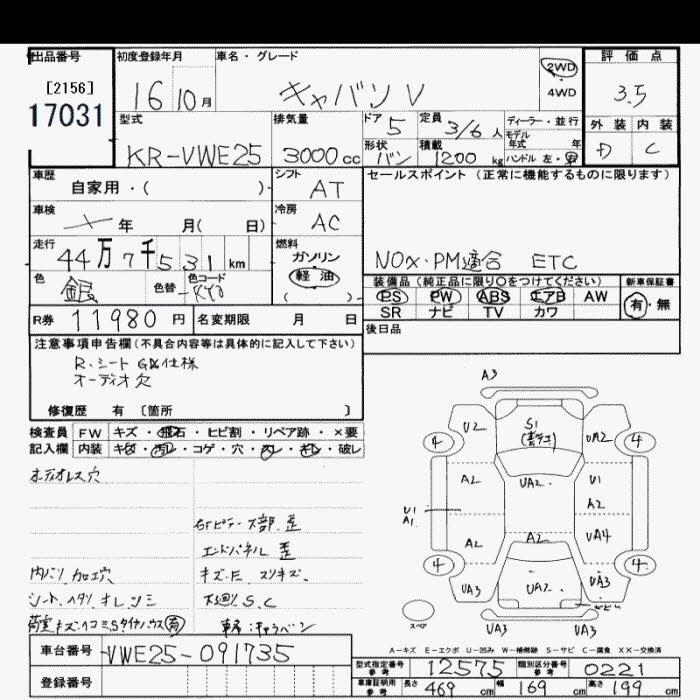 出品番号
[2156]
17031
初度登録年月
16 10月
車名・グレード
キャバン V
2WD
4WD
評価点
3.5
外装 内装
D C
型式
KR-VWE25
排気量
3000cc
ドア 5
形状 バン
定員 3/6人
積載 1200kg
ディーラー・並行
モデル年式 年
ハンドル 左・右
車歴
自家用・( )
シフト AT
車検
年 月( 日)
冷房 AC
走行
44万7千531km
燃料
ガソリン
軽油
( )
色 銀
色替
色コード KY0
セールスポイント (正常に機能するものに限ります)
NOx・PM適合 ETC
装備品(純正品に限り○をつけてください)
PS PW ABS エアB AW
SR ナビ TV カワ
新車保証書
有・無
R券 11980円
名変期限 月 日
後日品
注意事項申告欄(不具合内容等は具体的に記入して下さい)
R、シート GX仕様
オーディオ穴
修復歴 有 [箇所 ]
検査員記入欄
FW キズ・飛石・ヒビ割・リペア跡・×要
内装 キズ・汚レ・コゲ・穴・スレ・キレ・破レ
オーディオレス穴
エンドパネル 歪
内バリ 加工穴
キズ・E スリキズ
シート、ヘタリ オレンミ
下廻り S、C
車台番号 VWE25-091735
登録番号
A3
U2
S1
UA2
4
4
A2
UA2
U1
A2
U1
A1
A2
A2
UA4
4
4
UA3
UA2
UA3
スペア
UA3
UA3
A-キズ E-エクボ U-凹み W-補修跡 S-サビ C-腐食 XX-交換済
型式指定番号 参考 12575
類別区分番号 参考 0221
車庫証明用 参考 長さ 469cm 幅 169cm 高さ 199cm